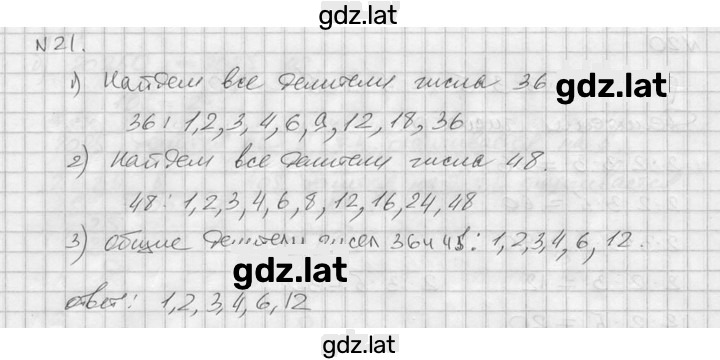 gdz.lat
N 21.
1) Найдем все делители числа 36
gdz.lat
36: 1,2,3,4,6,9,12,18,36
2) Найдем все делители числа 48.
48: 1,2,3,4,6,8,12,16,24,48
3) общие делители чисел 36 и 48: 1,2,3,4,6,12.
gdz.lat
ответ: 1,2,3,4,6,12
gdz.lat